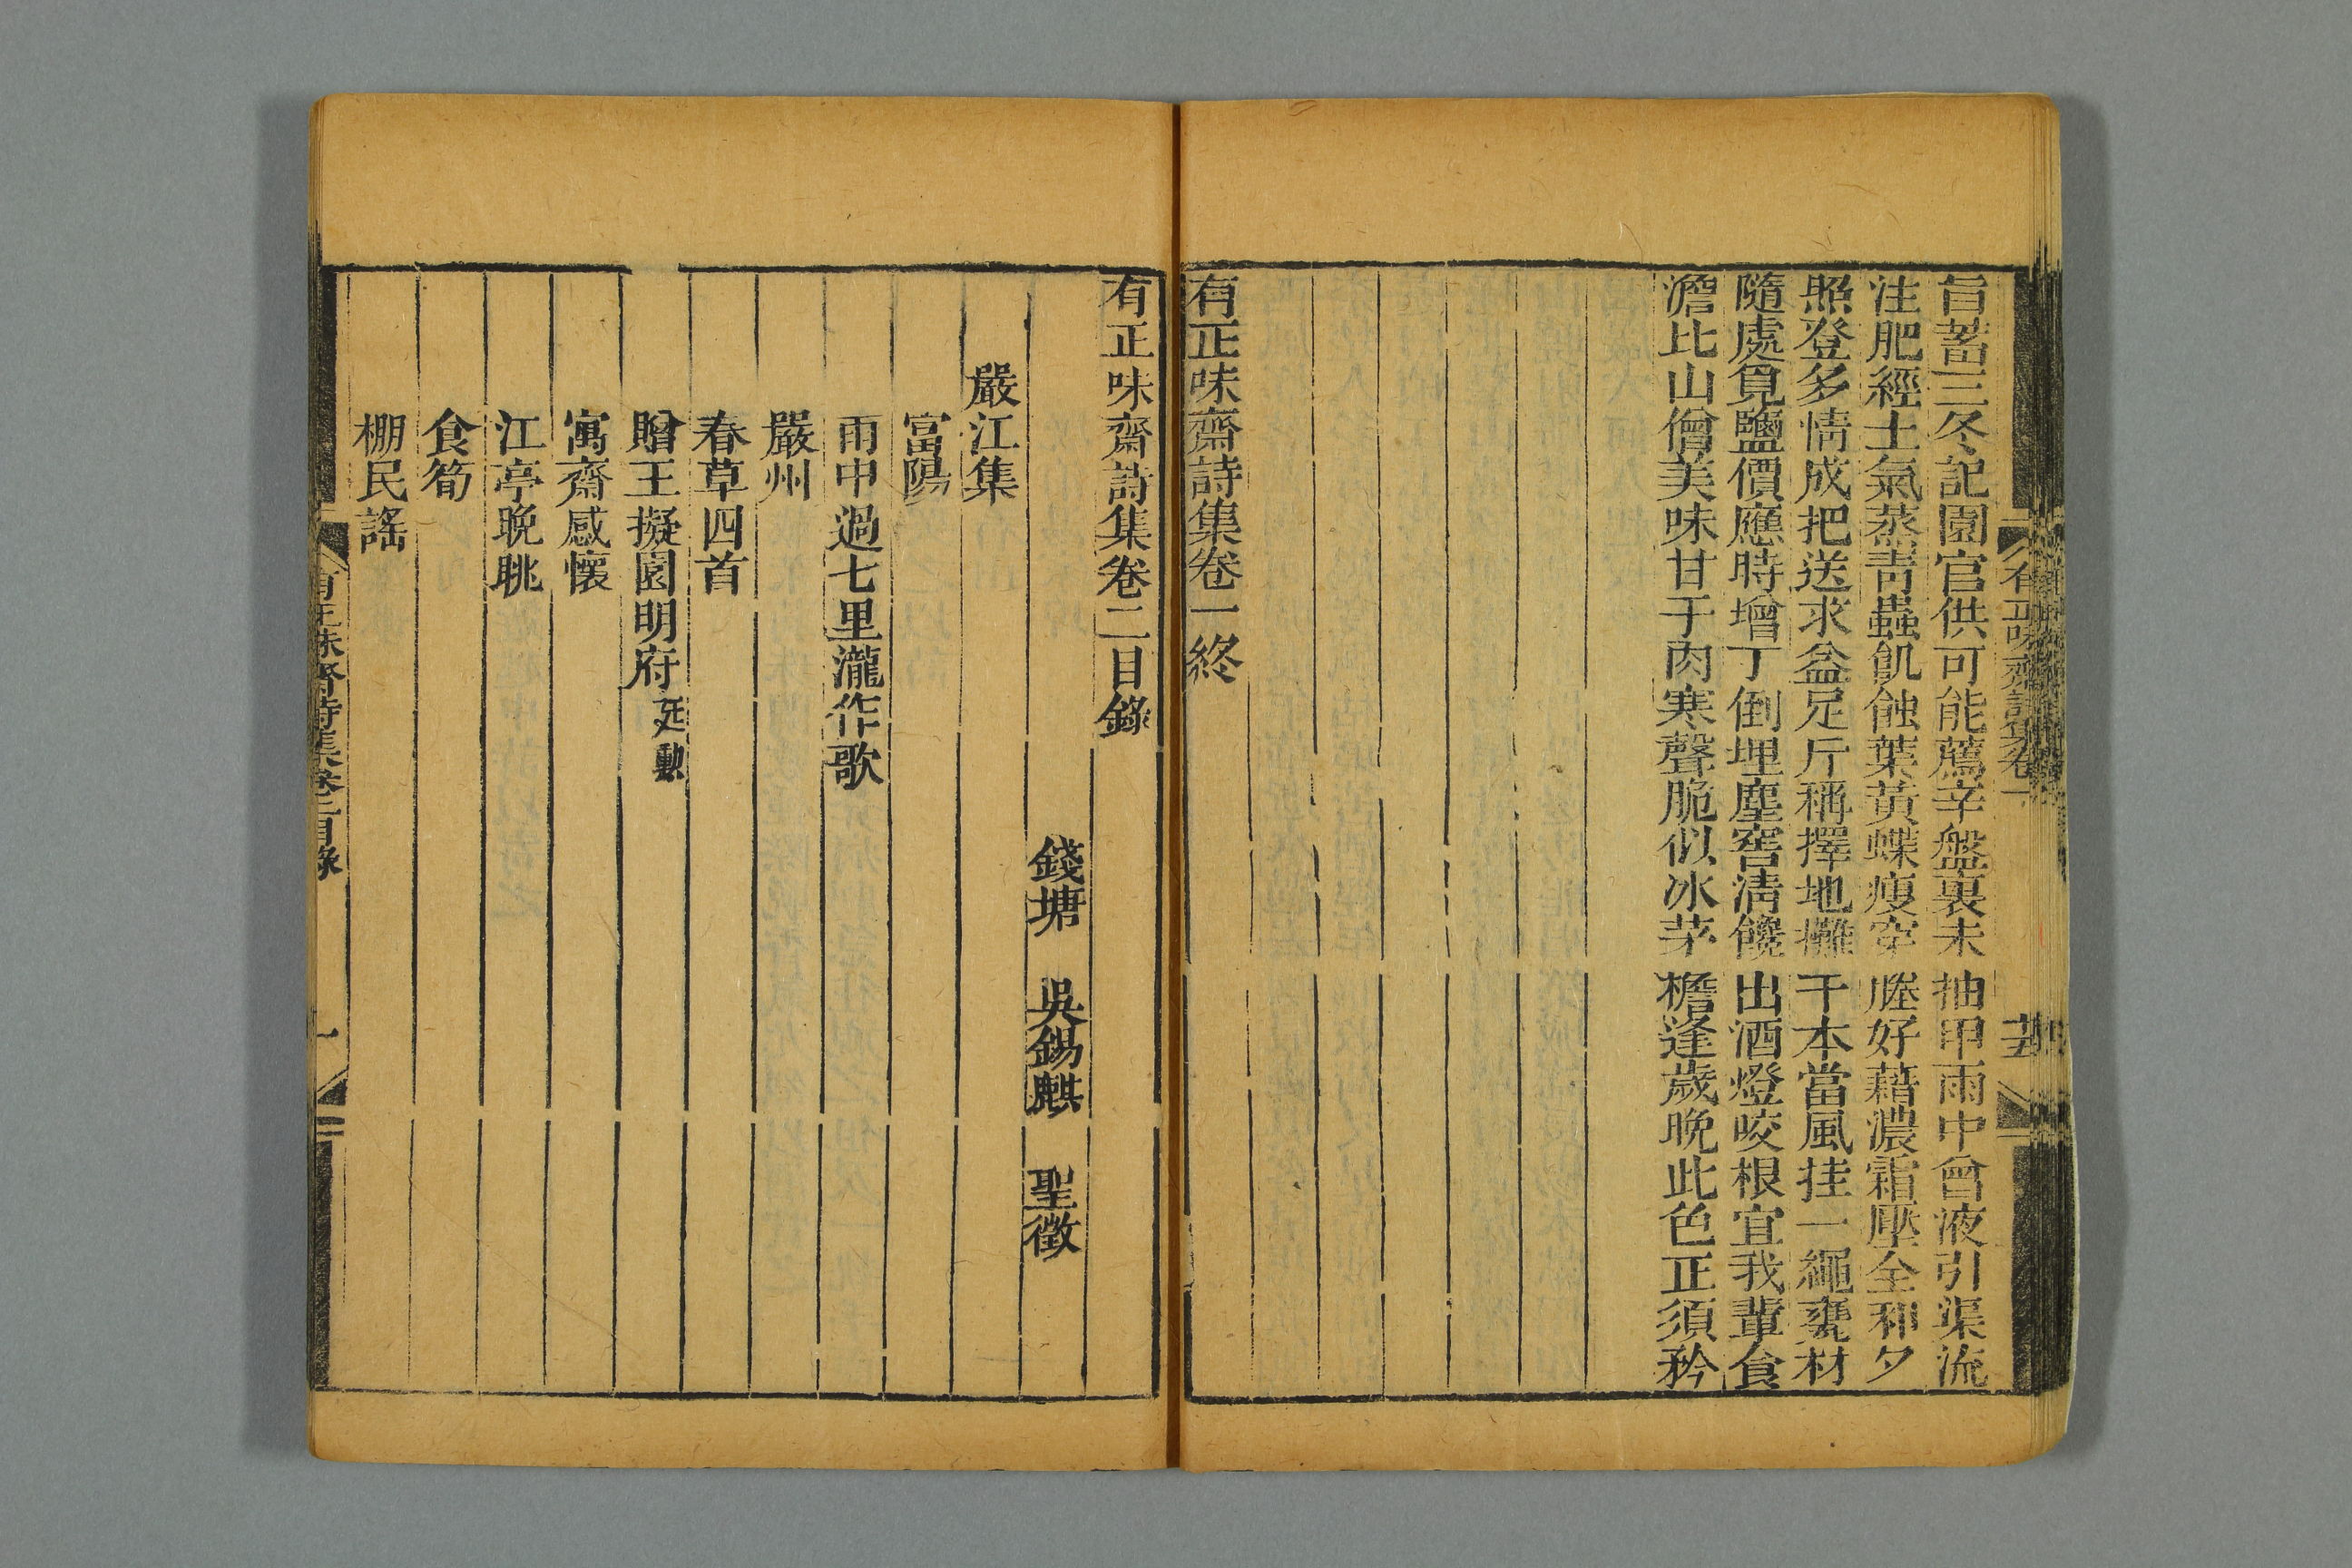 旨蓄三冬記園官供可能薦辛盤裏未抽甲雨中曾液引渠流
注肥經土氣蒸靑蟲飢蝕葉黃蝶瘦穿塍好藉濃霜壓全和夕
照登多情成把送求益足斤稱擇地攤千本當風挂一繩甕材
隨處覓鹽價應時增丁倒埋塵窖淸饞出酒燈咬根宜我輩食
澹比山僧美味甘于肉寒聲脆似冰茅檐逢歲晚此色正須矜
有正味齋詩集卷一終
有正味齋詩集卷一
有正味齋詩集卷二目錄
錢塘 吳錫麒 聖徵
嚴江集
富陽
雨中過七里瀧作歌
嚴州
春草四首
贈王擬園明府廷勳
寓齋感懷
江亭晚眺
食筍
棚民謠
有正味齋詩集卷二目錄 一